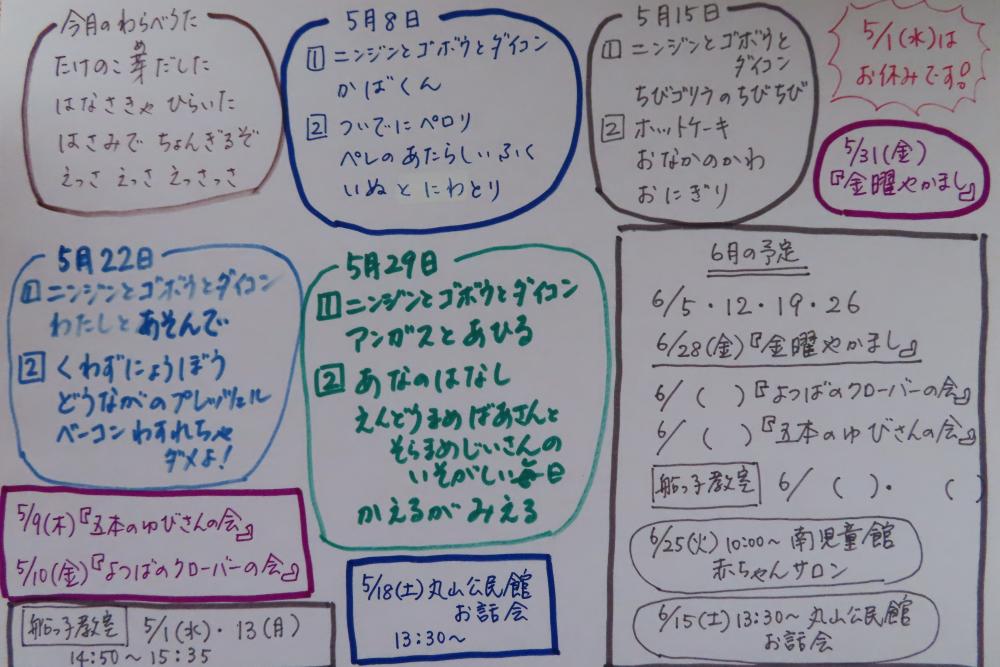 今月のわらべうた
たけのこ芽だした
め
はなさきゃ ひらいた
はさみで ちょんぎるぞ
えっさ えっさ えっさっさ
5月8日
1 ニンジンとゴボウとダイコン
かばくん
2 ついでにペロリ
ペレのあたらしいふく
いぬとにわとり
5月15日
1 ニンジンとゴボウと
ダイコン
ちびゴリラのちびちび
2 ホットケーキ
おなかのかわ
おにぎり
5/1(水)は
お休みです。
5/31(金)
『金曜やかまし』
5月22日
1 ニンジンとゴボウとダイコン
わたしとあそんで
2 くわずにょうぼう
どうながのプレッツェル
ベーコンわすれちゃ
ダメよ!
5月29日
1 ニンジンとゴボウとダイコン
アンガスとあひる
2 あなのはなし
えんどうまめばあさんと
そらまめじいさんの
いそがしい毎日
かえるがみえる
6月の予定
6/5・12・19・26
6/28(金)『金曜やかまし』
6/ ( )『よつばのクローバーの会』
6/ ( )『五本のゆびさんの会』
船っ子教室 6/ ( )・ ( )
6/25(火) 10:00~ 南児童館
赤ちゃんサロン
6/15(土) 13:30~ 丸山公民館
お話会
5/9(木)『五本のゆびさんの会』
5/10(金)『よつばのクローバーの会』
船っ子教室 5/1(水)・13(月)
14:50~15:35
5/18(土)丸山公民館
お話会
13:30~